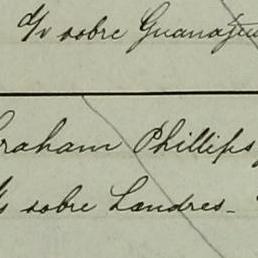 G/v sobre Guanajua
raham Phillips
s sobre Londres_